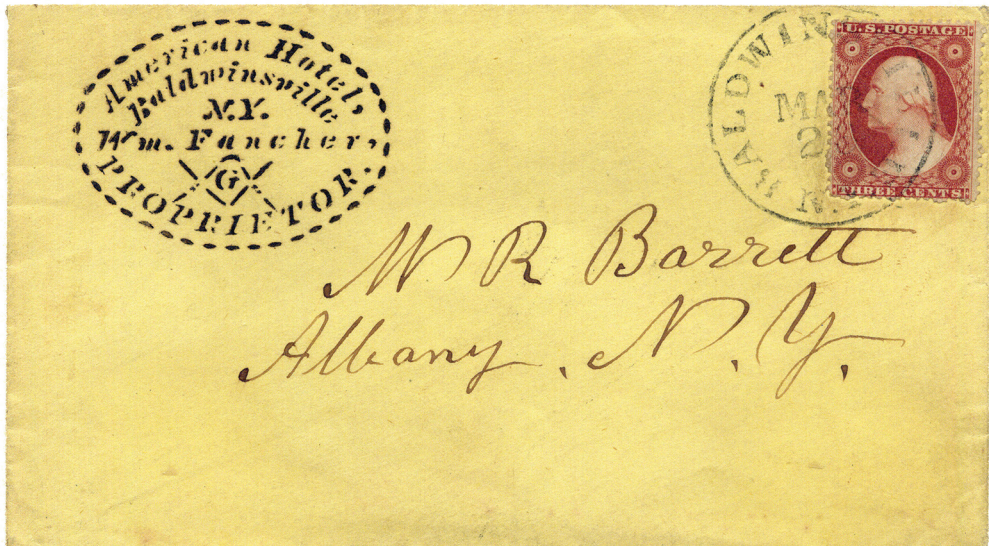 American Hotel,
Baldwinsville
N.Y.
Wm. Fancher,
G
PROPRIETOR.
BALDWIN
N.Y.
U.S. POSTAGE
THREE CENTS
W R Barrett
Albany, N. Y.